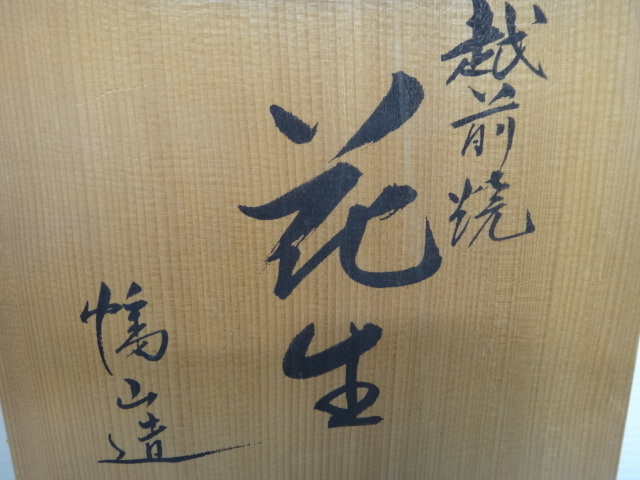 越前焼
花生
幡山造